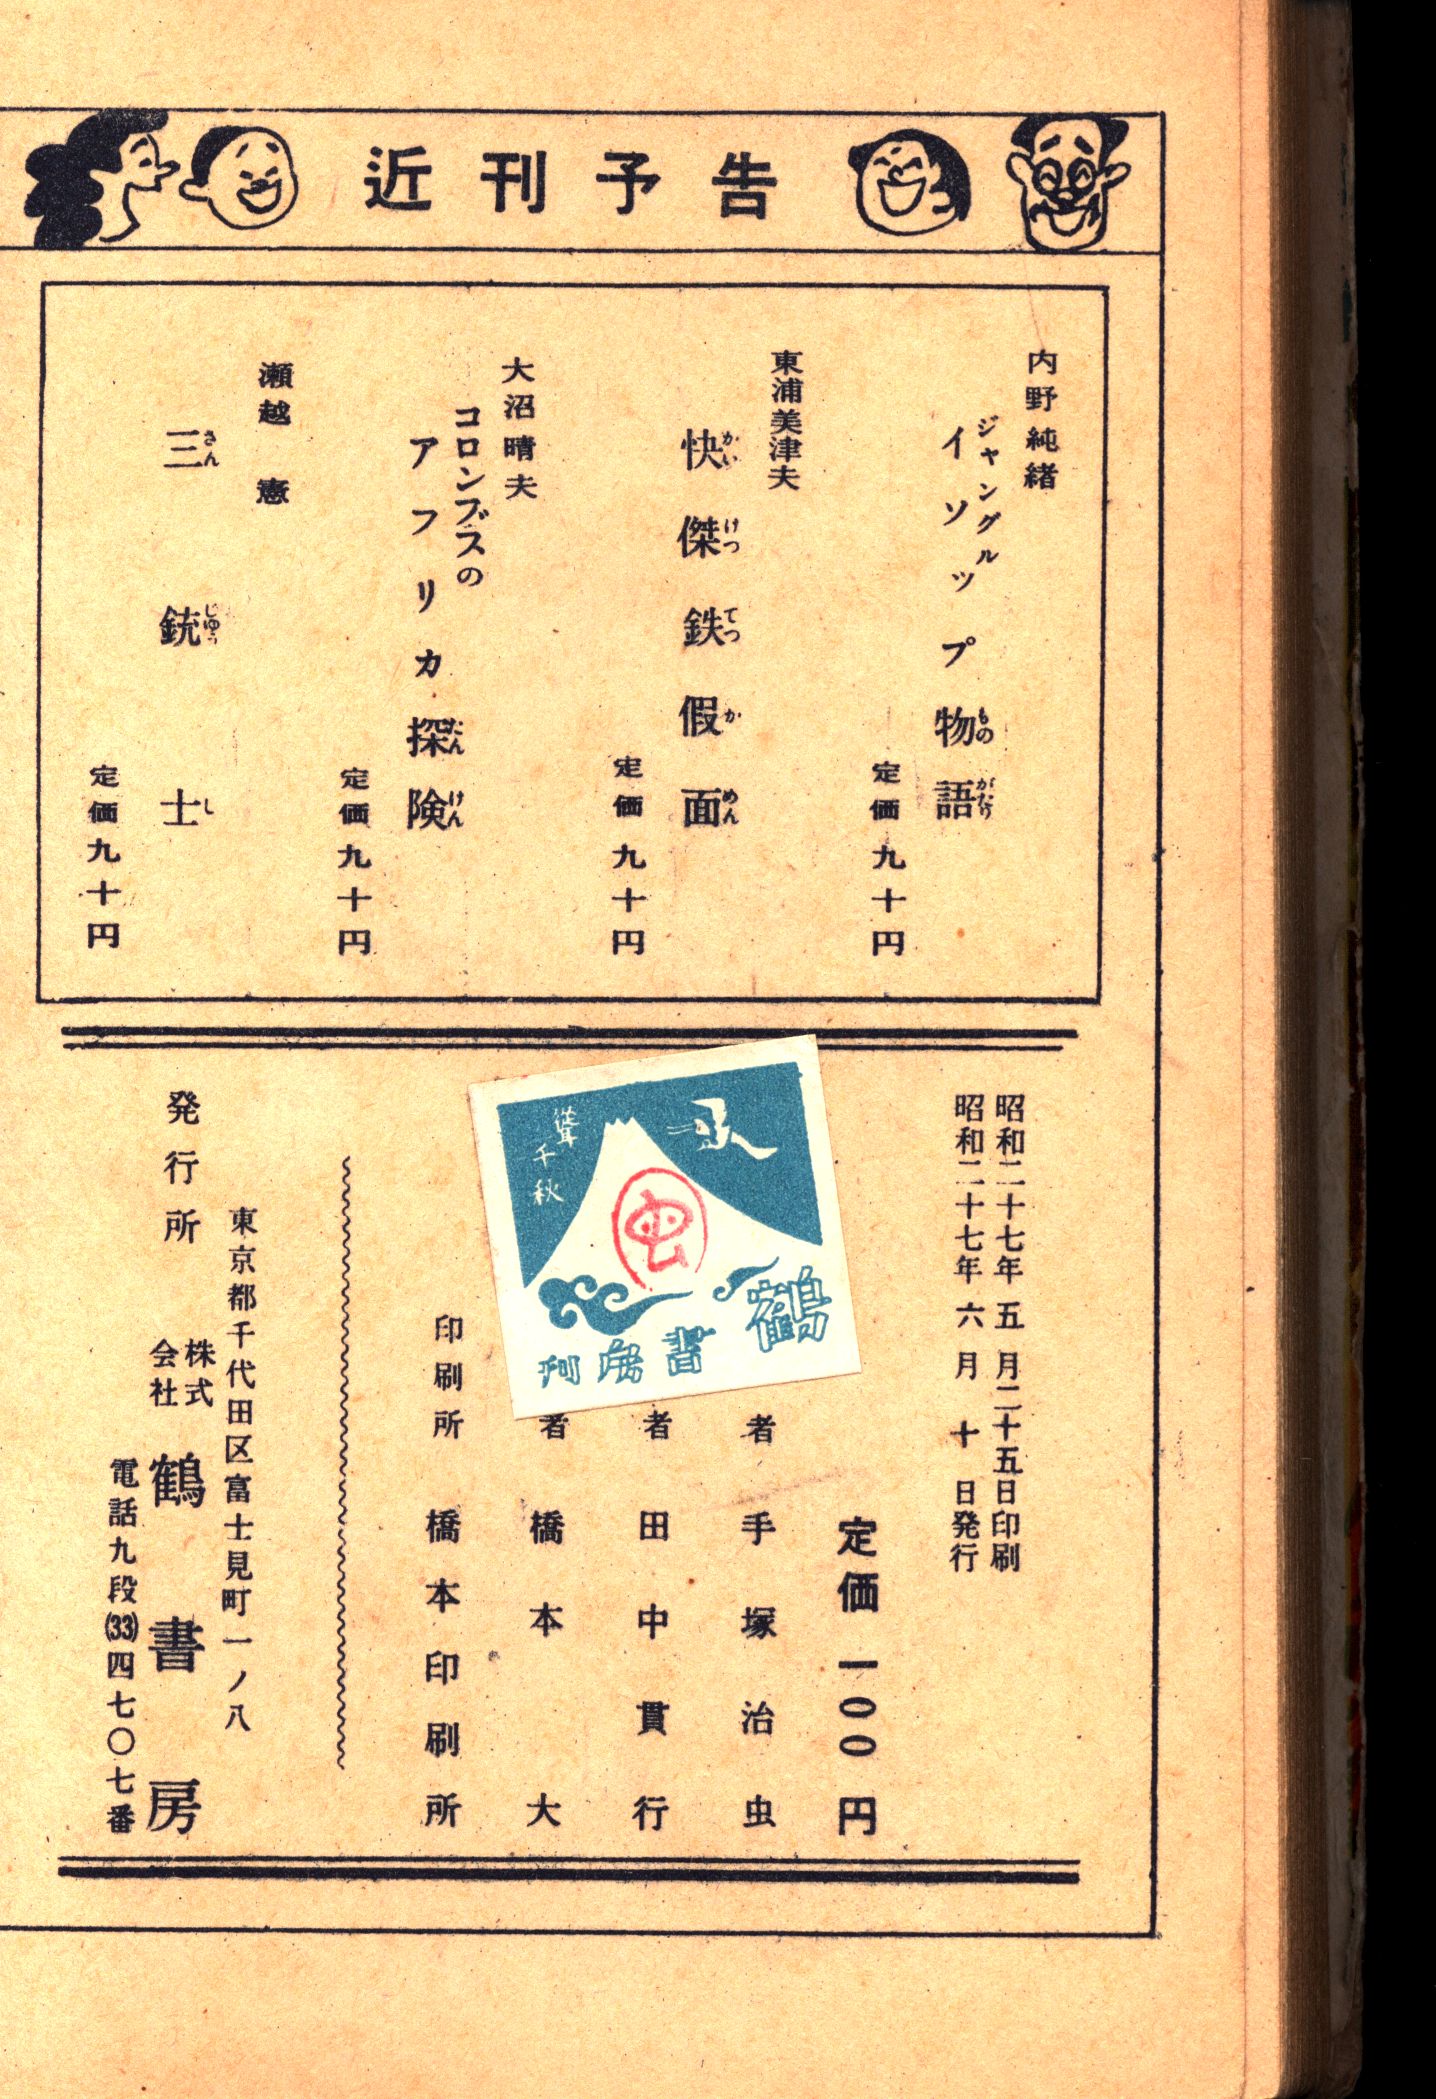 近刊予告
内野純緒
ジャングル
イソップ物語
ものがたり
定価九十円
東浦美津夫
快傑鉄假面
かいけつてつかめん
定価九十円
大沼晴夫
コロンブスの
アフリカ探険
たんけん
定価九十円
瀬越憲
三銃士
さんじゆうし
定価九十円
昭和二十七年五月二十五日印刷
昭和二十七年六月十日発行
定価一〇〇円
者手塚治虫
者田中貫行
者橋本大
印刷所橋本印刷所
千秋
虫
鶴書房刊
東京都千代田区富士見町一ノ八
発行所株式会社鶴書房
電話九段(33)四七〇七番